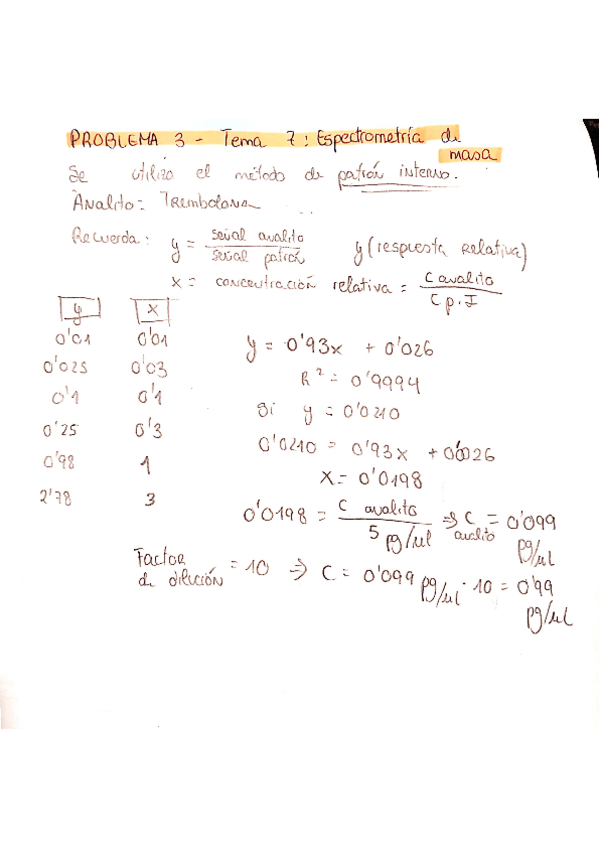 PROBLEMA 3 - Tema 7: Espectrometría de
masa
Se utilizo el método de patrón interno.
Analito = Trembolona
Recuerda: y = señal analito / señal patrón y (respuesta relativa)
x = concentración relativa = C analito / C p.I
y x
0'01 0'01
0'025 0'03
0'1 0'1
0'25 0'3
0'98 1
2'78 3
y = 0'93x + 0'026
R² = 0'9994
Si y = 0'0210
0'0210 = 0'93x + 0'0026
x = 0'0198
0'0198 = C analito / 5 pg/ul ⇒ C analito = 0'099 pg/ul
Factor de dilución = 10 ⇒ C = 0'099 pg/ul · 10 = 0'99
pg/ul